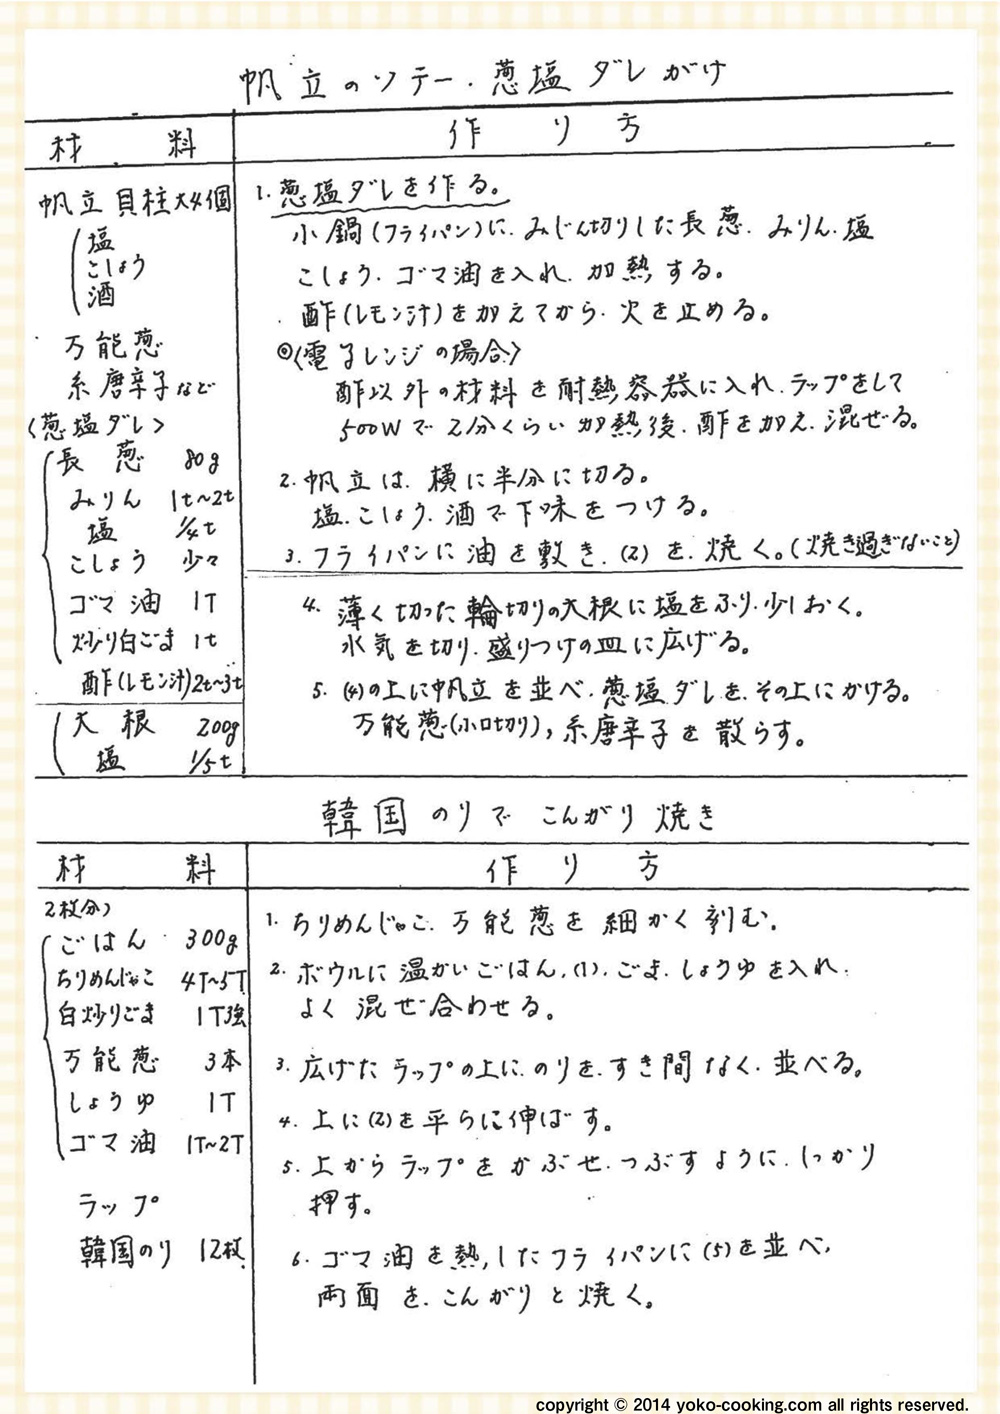 帆立のソテー・葱塩ダレがけ
材 料
作 り 方
帆立貝柱大4個
塩
こしょう
酒
万能葱
糸唐辛子など
〈葱塩ダレ〉
長葱 80g
みりん 1t〜2t
塩 1/4t
こしょう 少々
ゴマ油 1T
炒り白ごま 1t
酢(レモン汁)2t〜3t
大根 200g
塩 1/5t
1. 葱塩ダレを作る。
小鍋(フライパン)に、みじん切りした長葱、みりん、塩
こしょう、ゴマ油を入れ、加熱する。
酢(レモン汁)を加えてから、火を止める。
◎〈電子レンジの場合〉
酢以外の材料を耐熱容器に入れ、ラップをして
500Wで2分くらい加熱後、酢を加え、混ぜる。
2. 帆立は、横に半分に切る。
塩、こしょう、酒で下味をつける。
3. フライパンに油を敷き、(2)を、焼く。(焼き過ぎないこと)
4. 薄く切った輪切りの大根に塩をふり、少しおく。
水気を切り、盛りつけの皿に広げる。
5. (4)の上に帆立を並べ、葱塩ダレを、その上にかける。
万能葱(小口切り)、糸唐辛子を散らす。
韓国のりで こんがり焼き
材 料
作 り 方
2枚分)
ごはん 300g
ちりめんじゃこ 4T〜5T
白炒りごま 1T強
万能葱 3本
しょうゆ 1T
ゴマ油 1T〜2T
ラップ
韓国のり 12枚
1. ちりめんじゃこ、万能葱を細かく刻む。
2. ボウルに温かいごはん、(1)、ごま、しょうゆを入れ、
よく混ぜ合わせる。
3. 広げたラップの上に、のりを、すき間なく、並べる。
4. 上に(2)を平らに伸ばす。
5. 上からラップをかぶせ、つぶすように、しっかり
押す。
6. ゴマ油を熱したフライパンに(5)を並べ、
両面を、こんがりと焼く。
copyright © 2014 yoko-cooking.com all rights reserved.